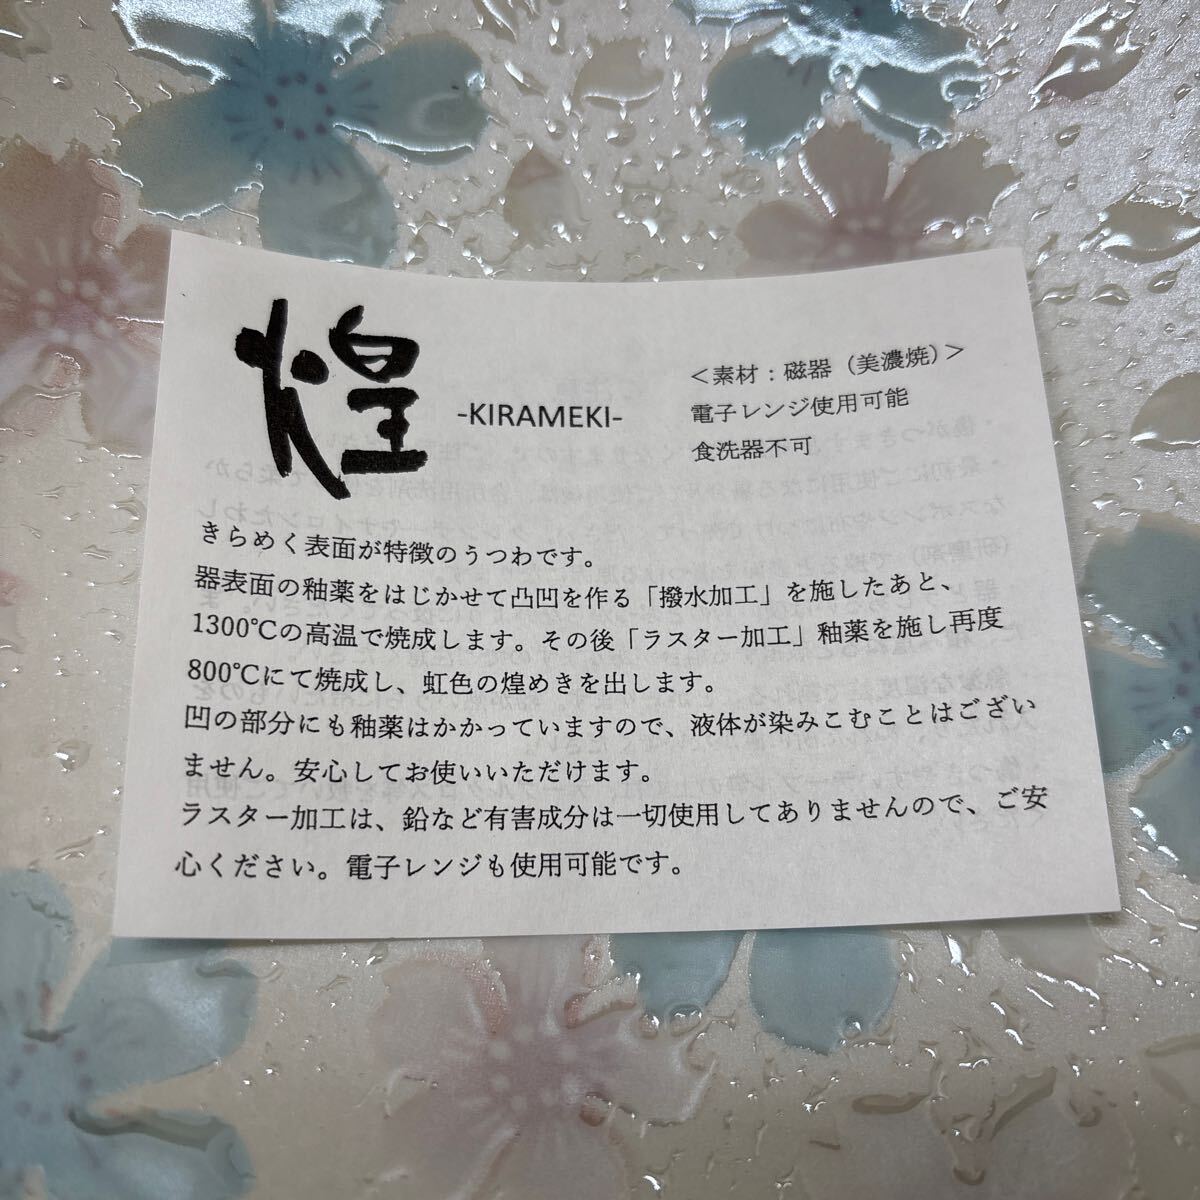 煌
-KIRAMEKI-
＜素材：磁器（美濃焼）＞
電子レンジ使用可能
食洗器不可
きらめく表面が特徴のうつわです。
器表面の釉薬をはじかせて凸凹を作る「撥水加工」を施したあと、
1300℃の高温で焼成します。その後「ラスター加工」釉薬を施し再度
800℃にて焼成し、虹色の煌めきを出します。
凹の部分にも釉薬はかかっていますので、液体が染みこむことはござい
ません。安心してお使いいただけます。
ラスター加工は、鉛など有害成分は一切使用してありませんので、ご安
心ください。電子レンジも使用可能です。